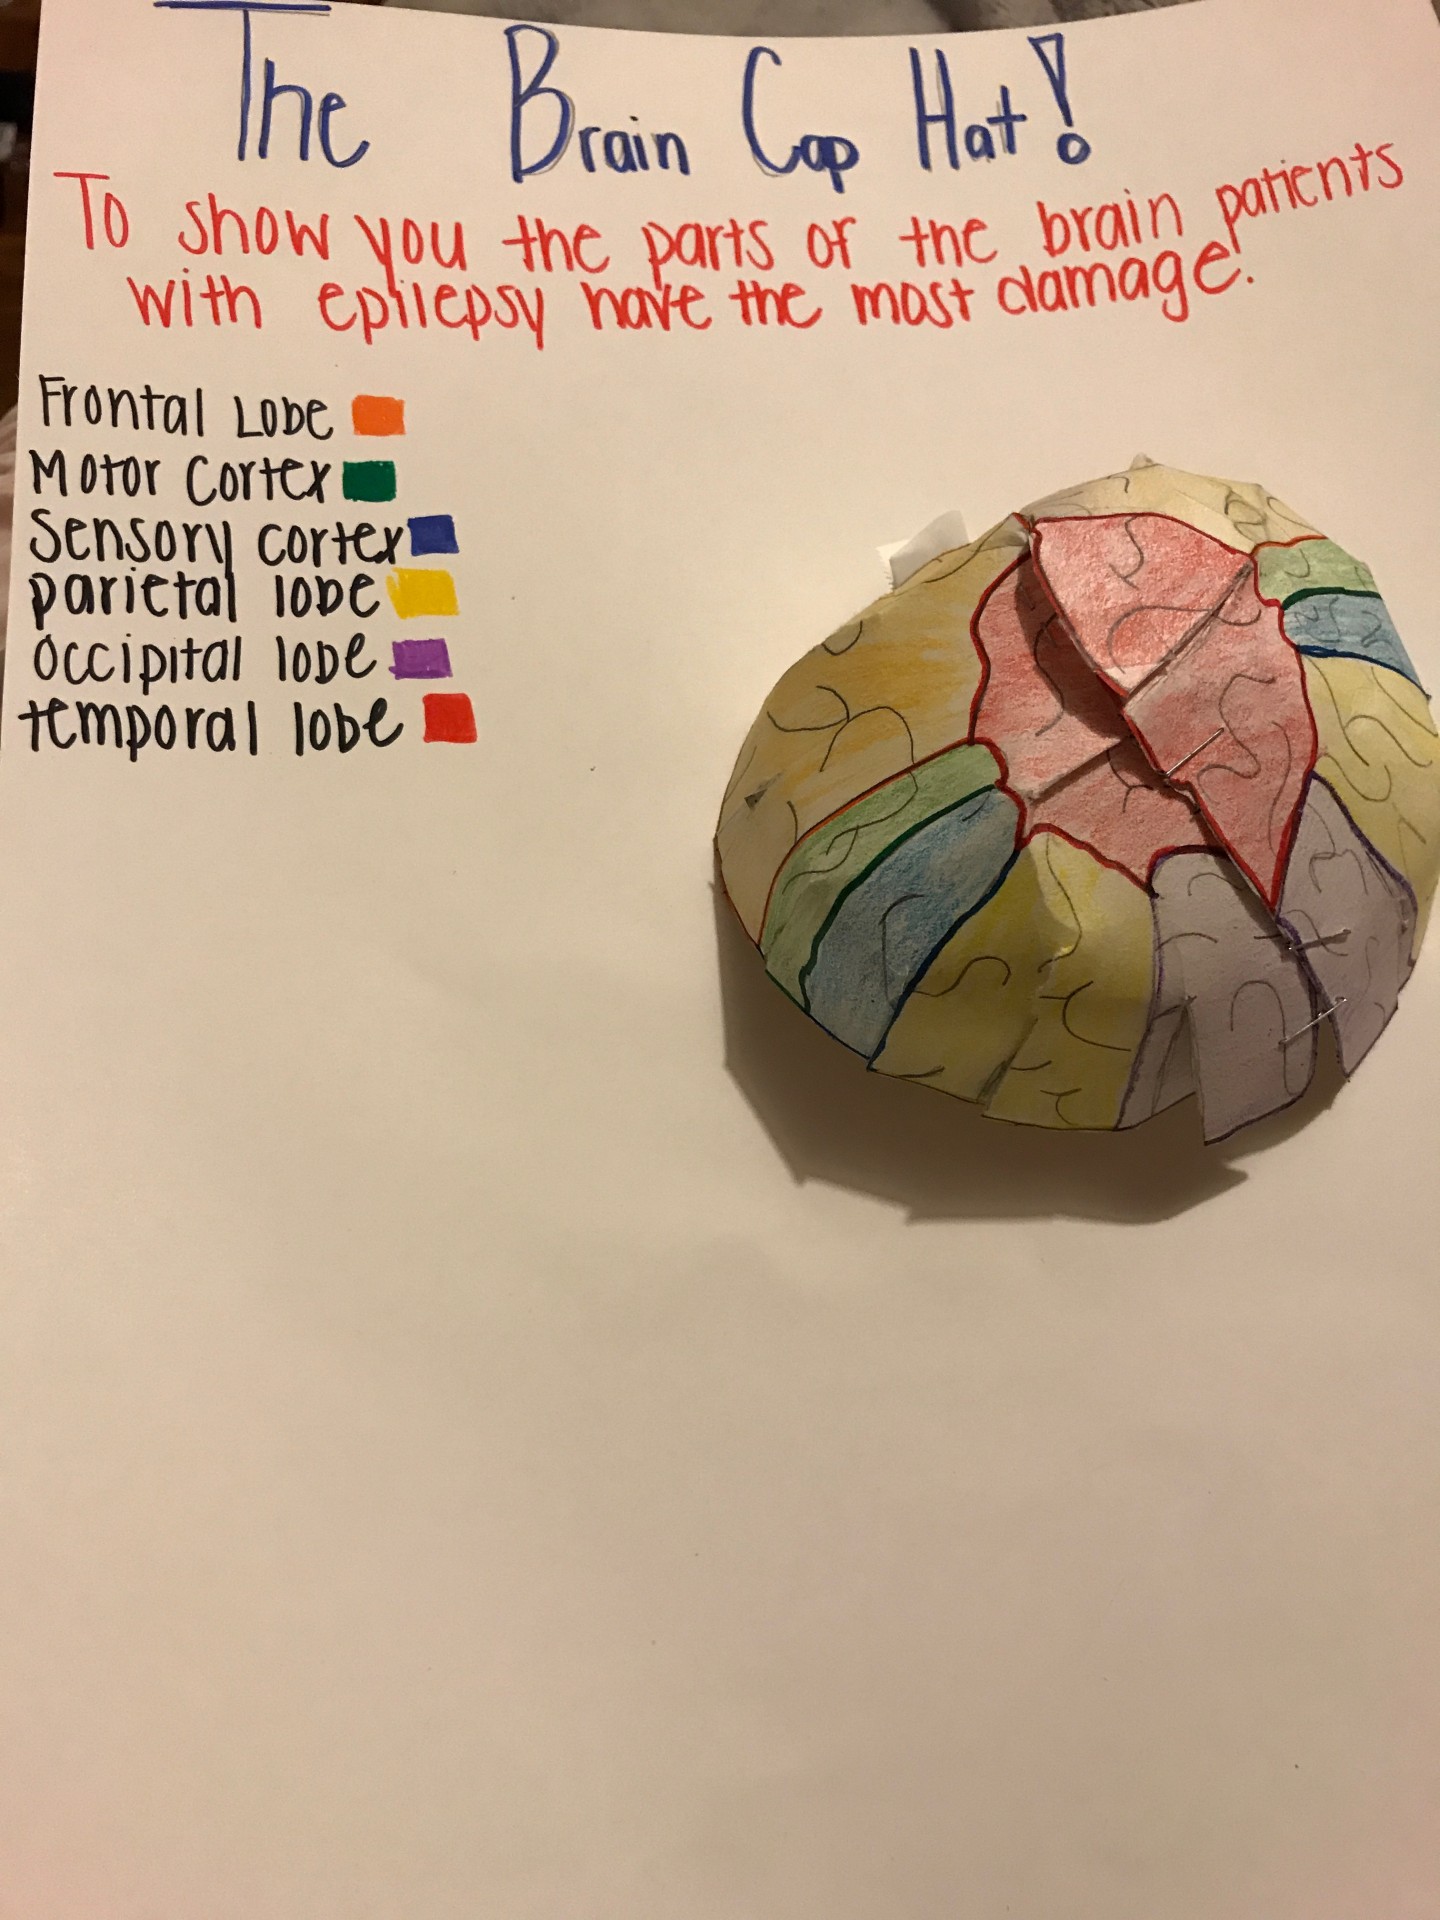 The Brain Cap Hat!
To show you the parts of the brain patients
with epilepsy have the most damage.
Frontal Lobe
Motor Cortex
Sensory cortex
parietal lobe
occipital lobe
temporal lobe